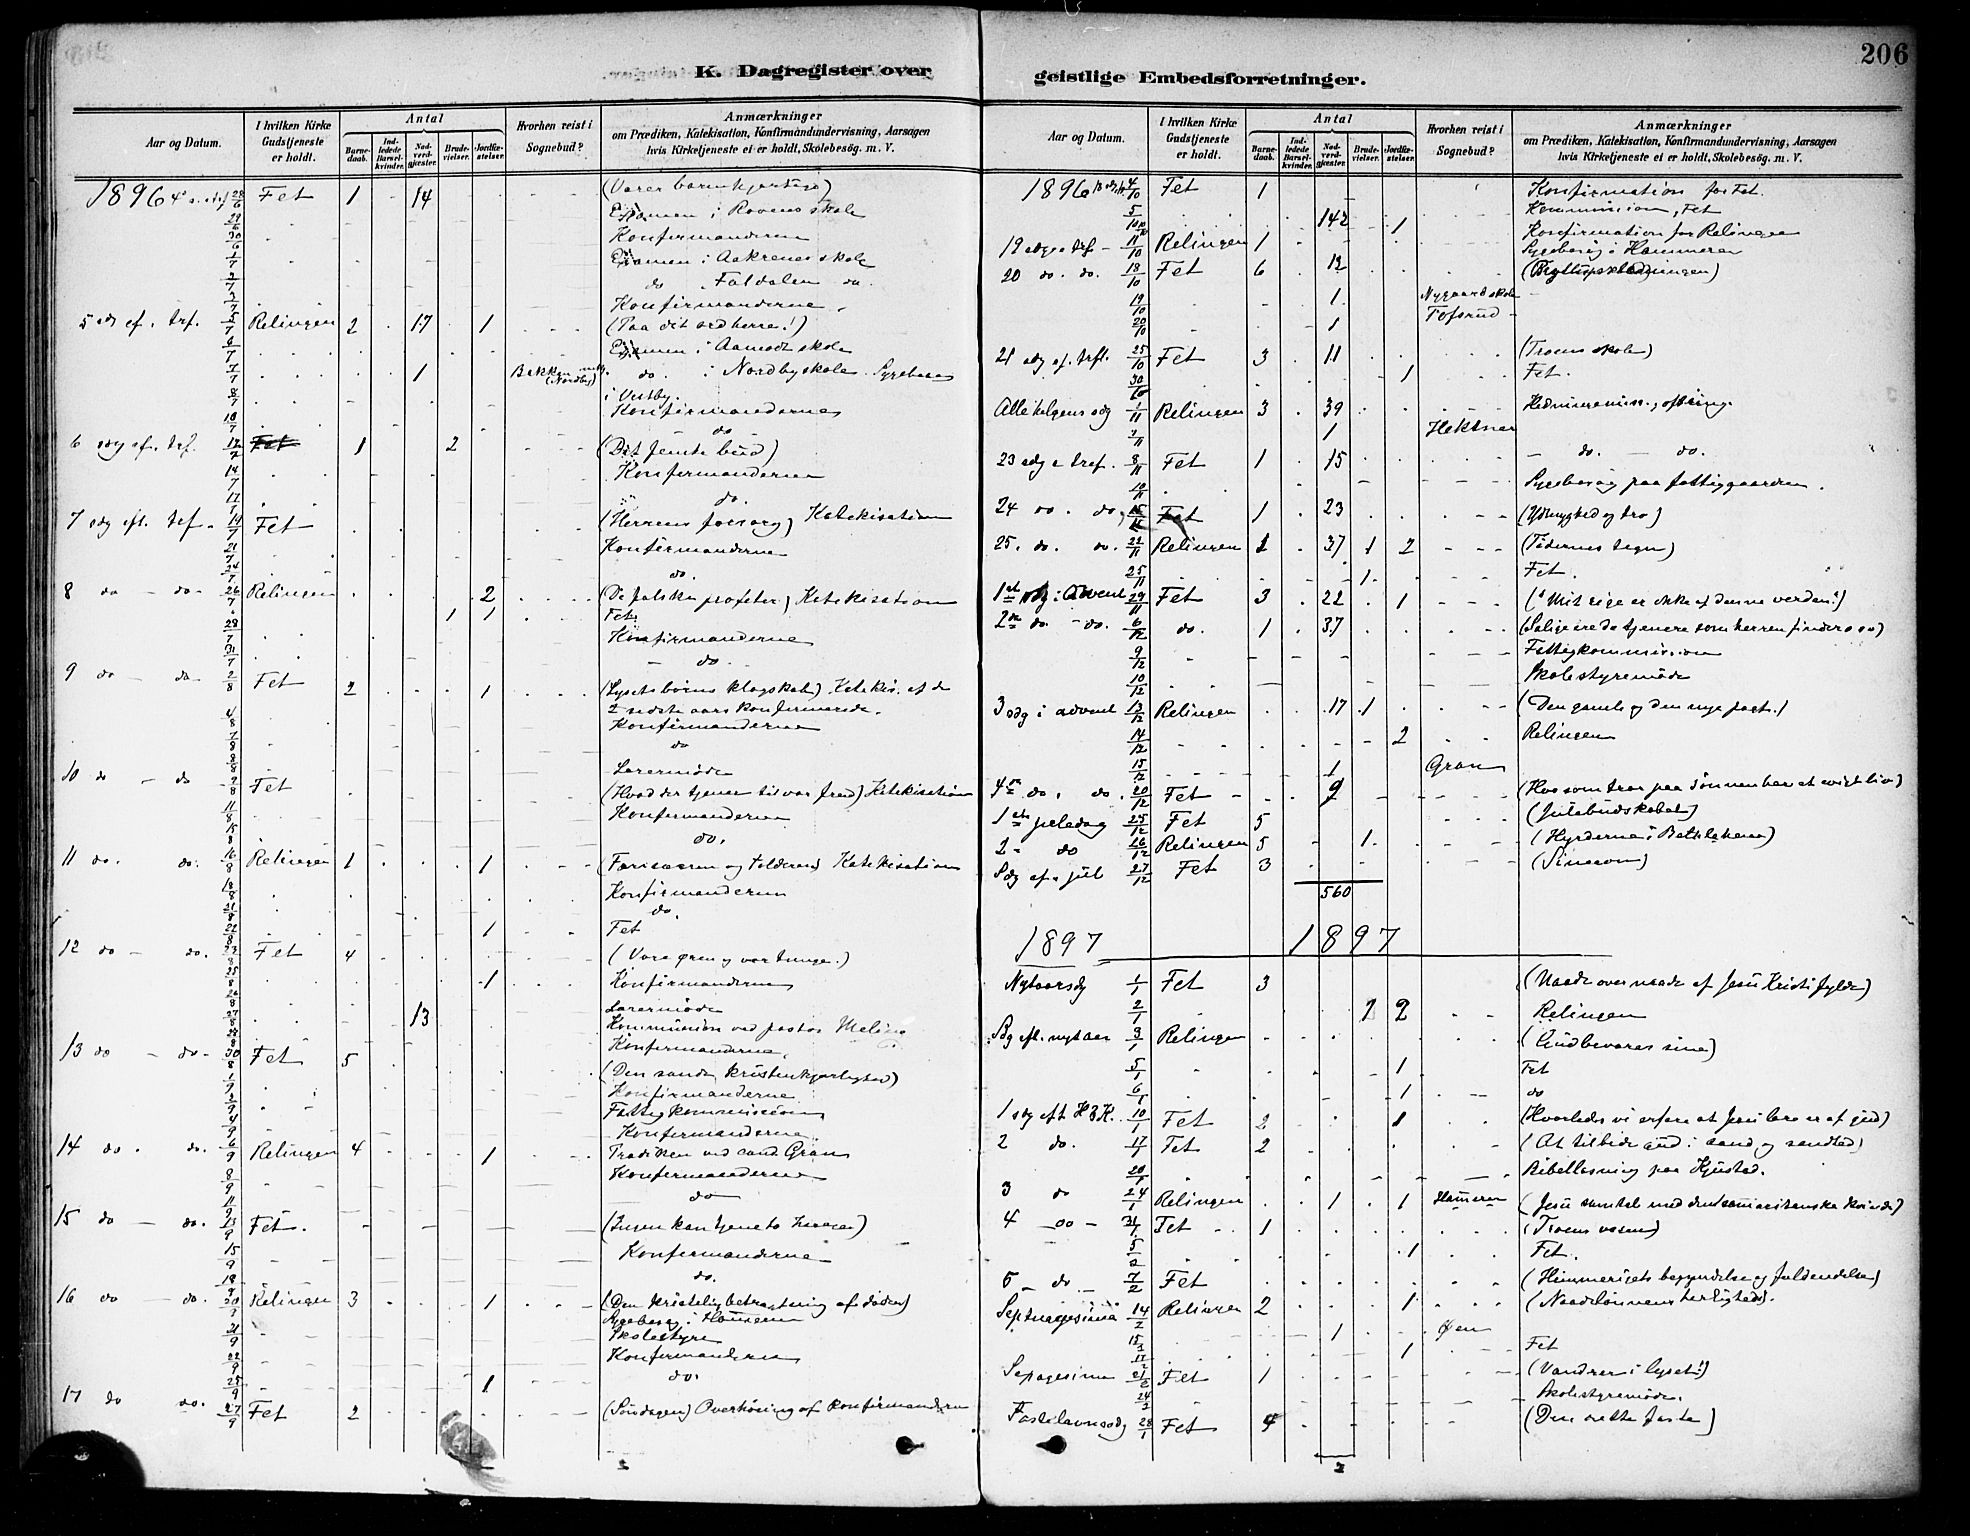 206
K. Dagregister over
geistlige Embedsforretninger.
Aar og Datum.
I hvilken Kirke Gudstjeneste er holdt.
Antal
Barne-daab.
Ind-ledede Barsel-kvinder.
Nad-verd-gjester.
Brude-vielser.
Jordfæ-stelser.
Hvorhen reist i Sognebud?
Anmærkninger
om Prædiken, Katekisation, Konfirmandundervisning, Aarsagen
hvis Kirketjeneste ei er holdt, Skolebesøg. m. V.
1896 28/6 Fet 1 14
Examen i Rovens skole
30/6 Konfirmanderne
1/7 Examen i Aakrenes skole
2/7 do Faldalen do.
3/7 Konfirmanderne
5 sdg ef. trf. 5/7 Relingen 2 17 1 (Paa dit ord herre!)
6/7 Examen i Aamodt skole
7/7 1 Bakken (Nordby) do. i Nordby skole. Sygebesøg
8/7 i Vestby.
Konfirmanderne
10/7 do
6 sdg ef. trf. 12/7 Fet 1 2 (Det femte bud)
14/7 Konfirmanderne
17/7 do.
7 sdg eft. tref. 19/7 Fet (Herrens forsorg) Katekisation
21/7 Konfirmanderne
24/7 do.
8 do - do - 26/7 Relingen 2 (De falske profeter) Katekisation
1 1 Fet
28/7 Konfirmanderne
31/7 - do.
9 do - do - 2/8 Fet 2 1 (Lysets børns klogskab) Katekis. af de
2 sidste aars konfirmerede.
4/8 Konfirmanderne
7/8 do
8/8 Lærermøde
10 do - do 9/8 Fet (Hvad der tjener til vor fred) Katekisation
11/8 Konfirmanderne
15/8 do.
11 do. do. 16/8 Relingen 1 1 (Farisæeren og tolderen) Katekisation
18/8 Konfirmanderne
21/8 do.
22/8 1 Fet
12 do - do. 23/8 Fet 4 (Vore øren og vor tunge.)
25/8 1 Konfirmanderne
26/8 Lærermøde
27/8 13 Kommunion ved pastor
28/8 Konfirmanderne.
13 do - do - 30/8 Fet 5 (Den sande kristenkjærlighed)
1/9 Konfirmanderne
2/9 Fattigkommission
4/9 Konfirmanderne
14 do. do. 6/9 Relingen 4 1 Prædiken ved cand. Gran
8/9 Konfirmanderne
11/9 do
15 do - do. 13/9 Fet. (Ingen kan tjene to herrer)
15/9 Konfirmanderne
18/9 do.
16 do - do. 20/9 Relingen 3 1 (Den kristelig betragtning af døden)
Sygebesøg i
21/9 Skolestyre
22/9 Konfirmanderne
25/9 1 do.
17 do do. 27/9 Fet 2 (Søndagen) Overhøring af konfirmanderne
Aar og Datum.
I hvilken Kirke Gudstjeneste er holdt.
Antal
Barne-daab.
Ind-ledede Barsel-kvinder.
Nad-verd-gjester.
Brude-vielser.
Jordfæ-stelser.
Hvorhen reist i Sognebud?
Anmærkninger
om Prædiken, Katekisation, Konfirmandundervisning, Aarsagen
hvis Kirketjeneste ei er holdt, Skolebesøg. m. V.
1896 4/10 Fet 1 Konfirmation for Fet.
5/10 142 Kommunion, Fet
10/10 1 Konfirmation for Relingen
19 sdg e trf - 11/10 Relingen 1 Sygebesøg i Hammeren
20 do. do. 18/10 Fet 6 12
19/10 1 Nygaard skole
20/10 1 Tofsrud
21 sdg ef. trft. 25/10 Fet 3 11 (Troens skole)
30/10 1 Fet.
Allehelgens sdg 1/11 Relingen 3 39 Hedningemiss., ofring.
2/11 1 Hektner
23 sdg e tref. 8/11 Fet 1 15 - do. - do.
10/11 Sygebesøg paa fattiggaarden.
24 do. do, 15/11 Fet 1 23 (Ydmyghed og tro)
25. do. do. 22/11 Relingen 1 37 1 2 (Tidernes tegn)
25/11 1. Fet.
1ste sdg i Advent 29/11 Fet 3 22 1 ("Mit rige er ikke af denne verden")
2den do. - do. 6/12 do. 1 37 (Salige ere de tjenere som herren finder o sv)
9/12 Fattigkommission
10/12 Skolestyremøde
3 sdg i advent 13/12 Relingen 17 1 (Den gamle og den nye pagt.)
14/12 2 Relingen
15/12 1 Gran
4de do. do. 20/12 Fet 9 (Hvo som tror paa sønnen har et evigt liv)
1ste juledag 25/12 Fet 5 (Julebudskabet)
2- do 26/12 Relingen 5 1. (Hyrderne i Bethlehem)
Sdg ef. jul 27/12 Fet 3 (Simeon)
560
1897 1897
Nytaarsdg 1/1 Fet 3 (Naade over naade af Jesu Kristi fylde)
2/1 1 2 Relingen
Sdg eft. nytaar 3/1 Relingen (Gud bevarer sine)
5/1 1 Fet
6/1 1 do
1 sdg eft H3K. 10/1 Fet 2 1 (Hvorledes vi erfare at Jesu lære er af gud)
2 do. 17/1 Fet 2 (At tilbede gud i aand og sandhed)
20/1 Bibellæsning paa Kjustad.
3 do 24/1 Relingen 1 1 Hammeren (Jesu samtale med den samaritanske kvinde)
4 - do - 31/1 Fet 1 (Troens væsen)
5/2 1 Fet.
5 - do - 7/2 Fet (Himmerigets begyndelse og fuldendelse)
Septuagesima 14/2 Relingen 2 1 (Naadelønnens herlighed).
15/2 1 Øen
17/2 1 Fet
21/2 Fet 1 (Vandrer i lyset!)
24/2 Skolestyremøde.
Fastelavnssdg 28/ Fet 4 (Den rette faste)
2